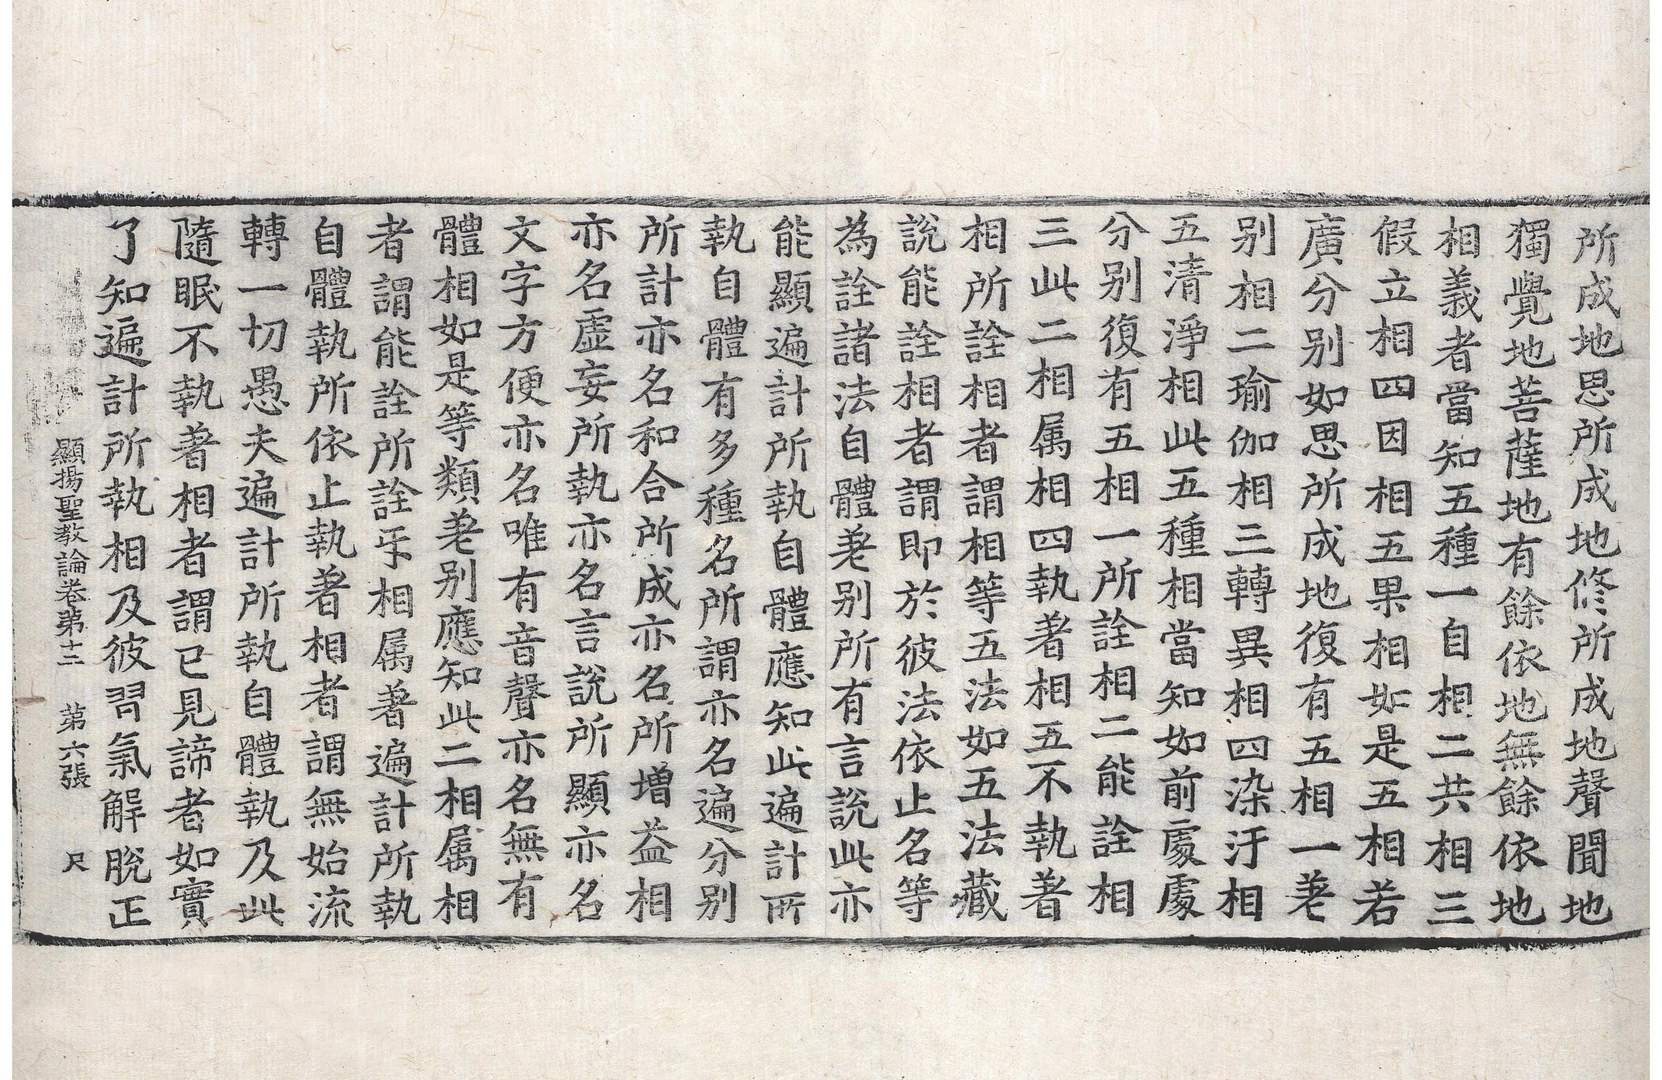 所成地思所成地修所成地聲聞地
獨覺地菩薩地有餘依地無餘依地
相義者當知五種一自相二共相三
假立相四因相五果相如是五相若
廣分别如思所成地復有五相一差
别相二瑜伽相三轉異相四染汙相
五清淨相此五種相當知如前處處
分别復有五相一所詮相二能詮相
三此二相属相四執著相五不執著
相所詮相者謂相等五法如五法藏
說能詮相者謂即於彼法依止名等
為詮諸法自體差别所有言說此亦
能顯遍計所執自體應知此遍計所
執自體有多種名所謂亦名遍分别
所計亦名和合所成亦名所增益相
亦名虛妄所執亦名言說所顯亦名
文字方便亦名唯有音聲亦名無有
體相如是等類差别應知此二相属相
者謂能詮所詮㸦相属著遍計所執
自體執所依止執著相者謂無始流
轉一切愚夫遍計所執自體執及此
隨眠不執著相者謂已見諦者如實
了知遍計所執相及彼習氣解脫正
顯揚聖教論卷第十二 第六張 尺